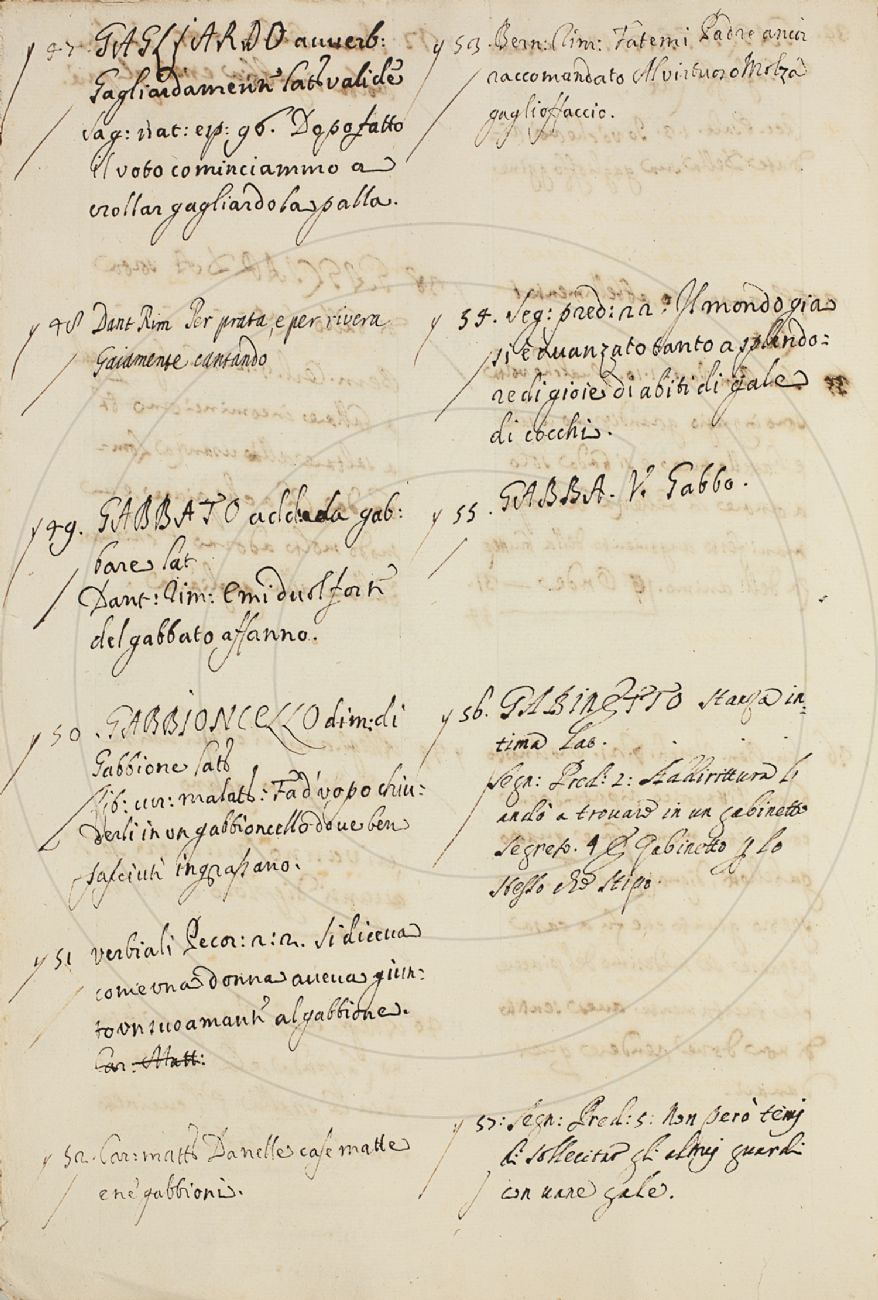 47. GAGLIARDO auuerb:
Gagliardamente lat: validè
Sag: nat: esp: 96. Dopo fatto
il voto cominciammo a
crollar gagliardo la palla.
48 Dant Rim Per prata, e per rivera
Gaiamente cantando
49. GABBATO add: da gab:
bare lat
Dant: Rim: E mi duol forte
del gabbato affanno.
50. GABBIONCELLO dim: di
Gabbione lat:
lib: cur: malatt: Fa d'vopo chiu:
derli in vn gabbioncello doue ben
pasciuti ingrassano.
51 verbiali Pecor: 2: 2. Si diceua
come vna donna aueua giun:
to vn suo amante al gabbione.
Car: Matt:
52. Car: matt: Da nelle case matte
e nè gabbioni.
53. Bern: Rim: Fatemi Padre ancor
raccomandato Al virtuoso Molza
gaglioffaccio.
54. Seg: pred: 22: Il mondo gia
si è auanzato tanto a splendo:
re di gioie di abiti di gale
di cocchi.
55. GABBA. V. Gabbo.
56. GABINETTO stanza in:
tima lat.
Segn: Pred: 2: Addirittura li
andò a trouare in un gabinetto
segreto. Gabinetto lo
stesso che stipo.
57: Segn: Pred: 5: Non però
di sollecitar gli altrui guardi
con uane gale.